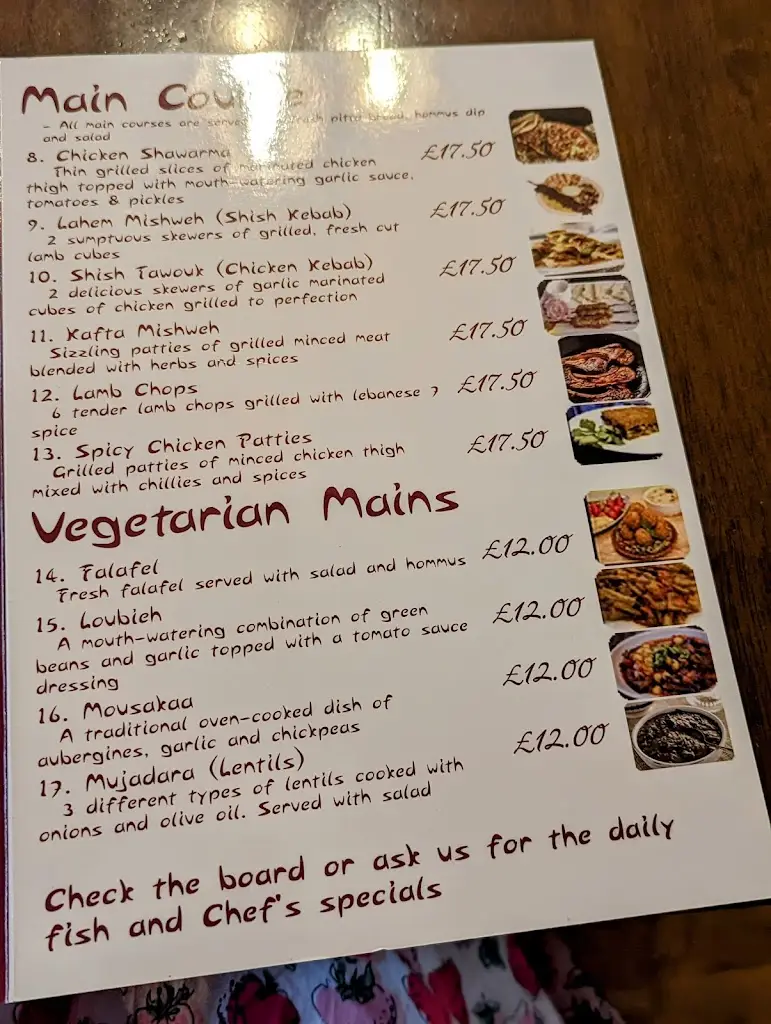 Main Course
- All main courses are serve fresh pitta bread, hommus dip
and salad
8. Chicken Shawarma £17.50
Thin grilled slices of marinated chicken
thigh topped with mouth-watering garlic sauce,
tomatoes & pickles
9. Lahem Mishweh (Shish Kebab) £17.50
2 sumptuous skewers of grilled, fresh cut
lamb cubes
10. Shish Tawouk (Chicken Kebab) £17.50
2 delicious skewers of garlic marinated
cubes of chicken grilled to perfection
11. Kafta Mishweh £17.50
Sizzling patties of grilled minced meat
blended with herbs and spices
12. Lamb Chops £17.50
6 tender lamb chops grilled with lebanese 7
spice
13. Spicy Chicken Patties £17.50
Grilled patties of minced chicken thigh
mixed with chillies and spices
Vegetarian Mains
14. Falafel £12.00
Fresh falafel served with salad and hommus
15. Loubieh £12.00
A mouth-watering combination of green
beans and garlic topped with a tomato sauce
dressing
16. Mousakaa £12.00
A traditional oven-cooked dish of
aubergines, garlic and chickpeas
17. Mujadara (Lentils) £12.00
3 different types of lentils cooked with
onions and olive oil. Served with salad
Check the board or ask us for the daily
fish and Chef's specials